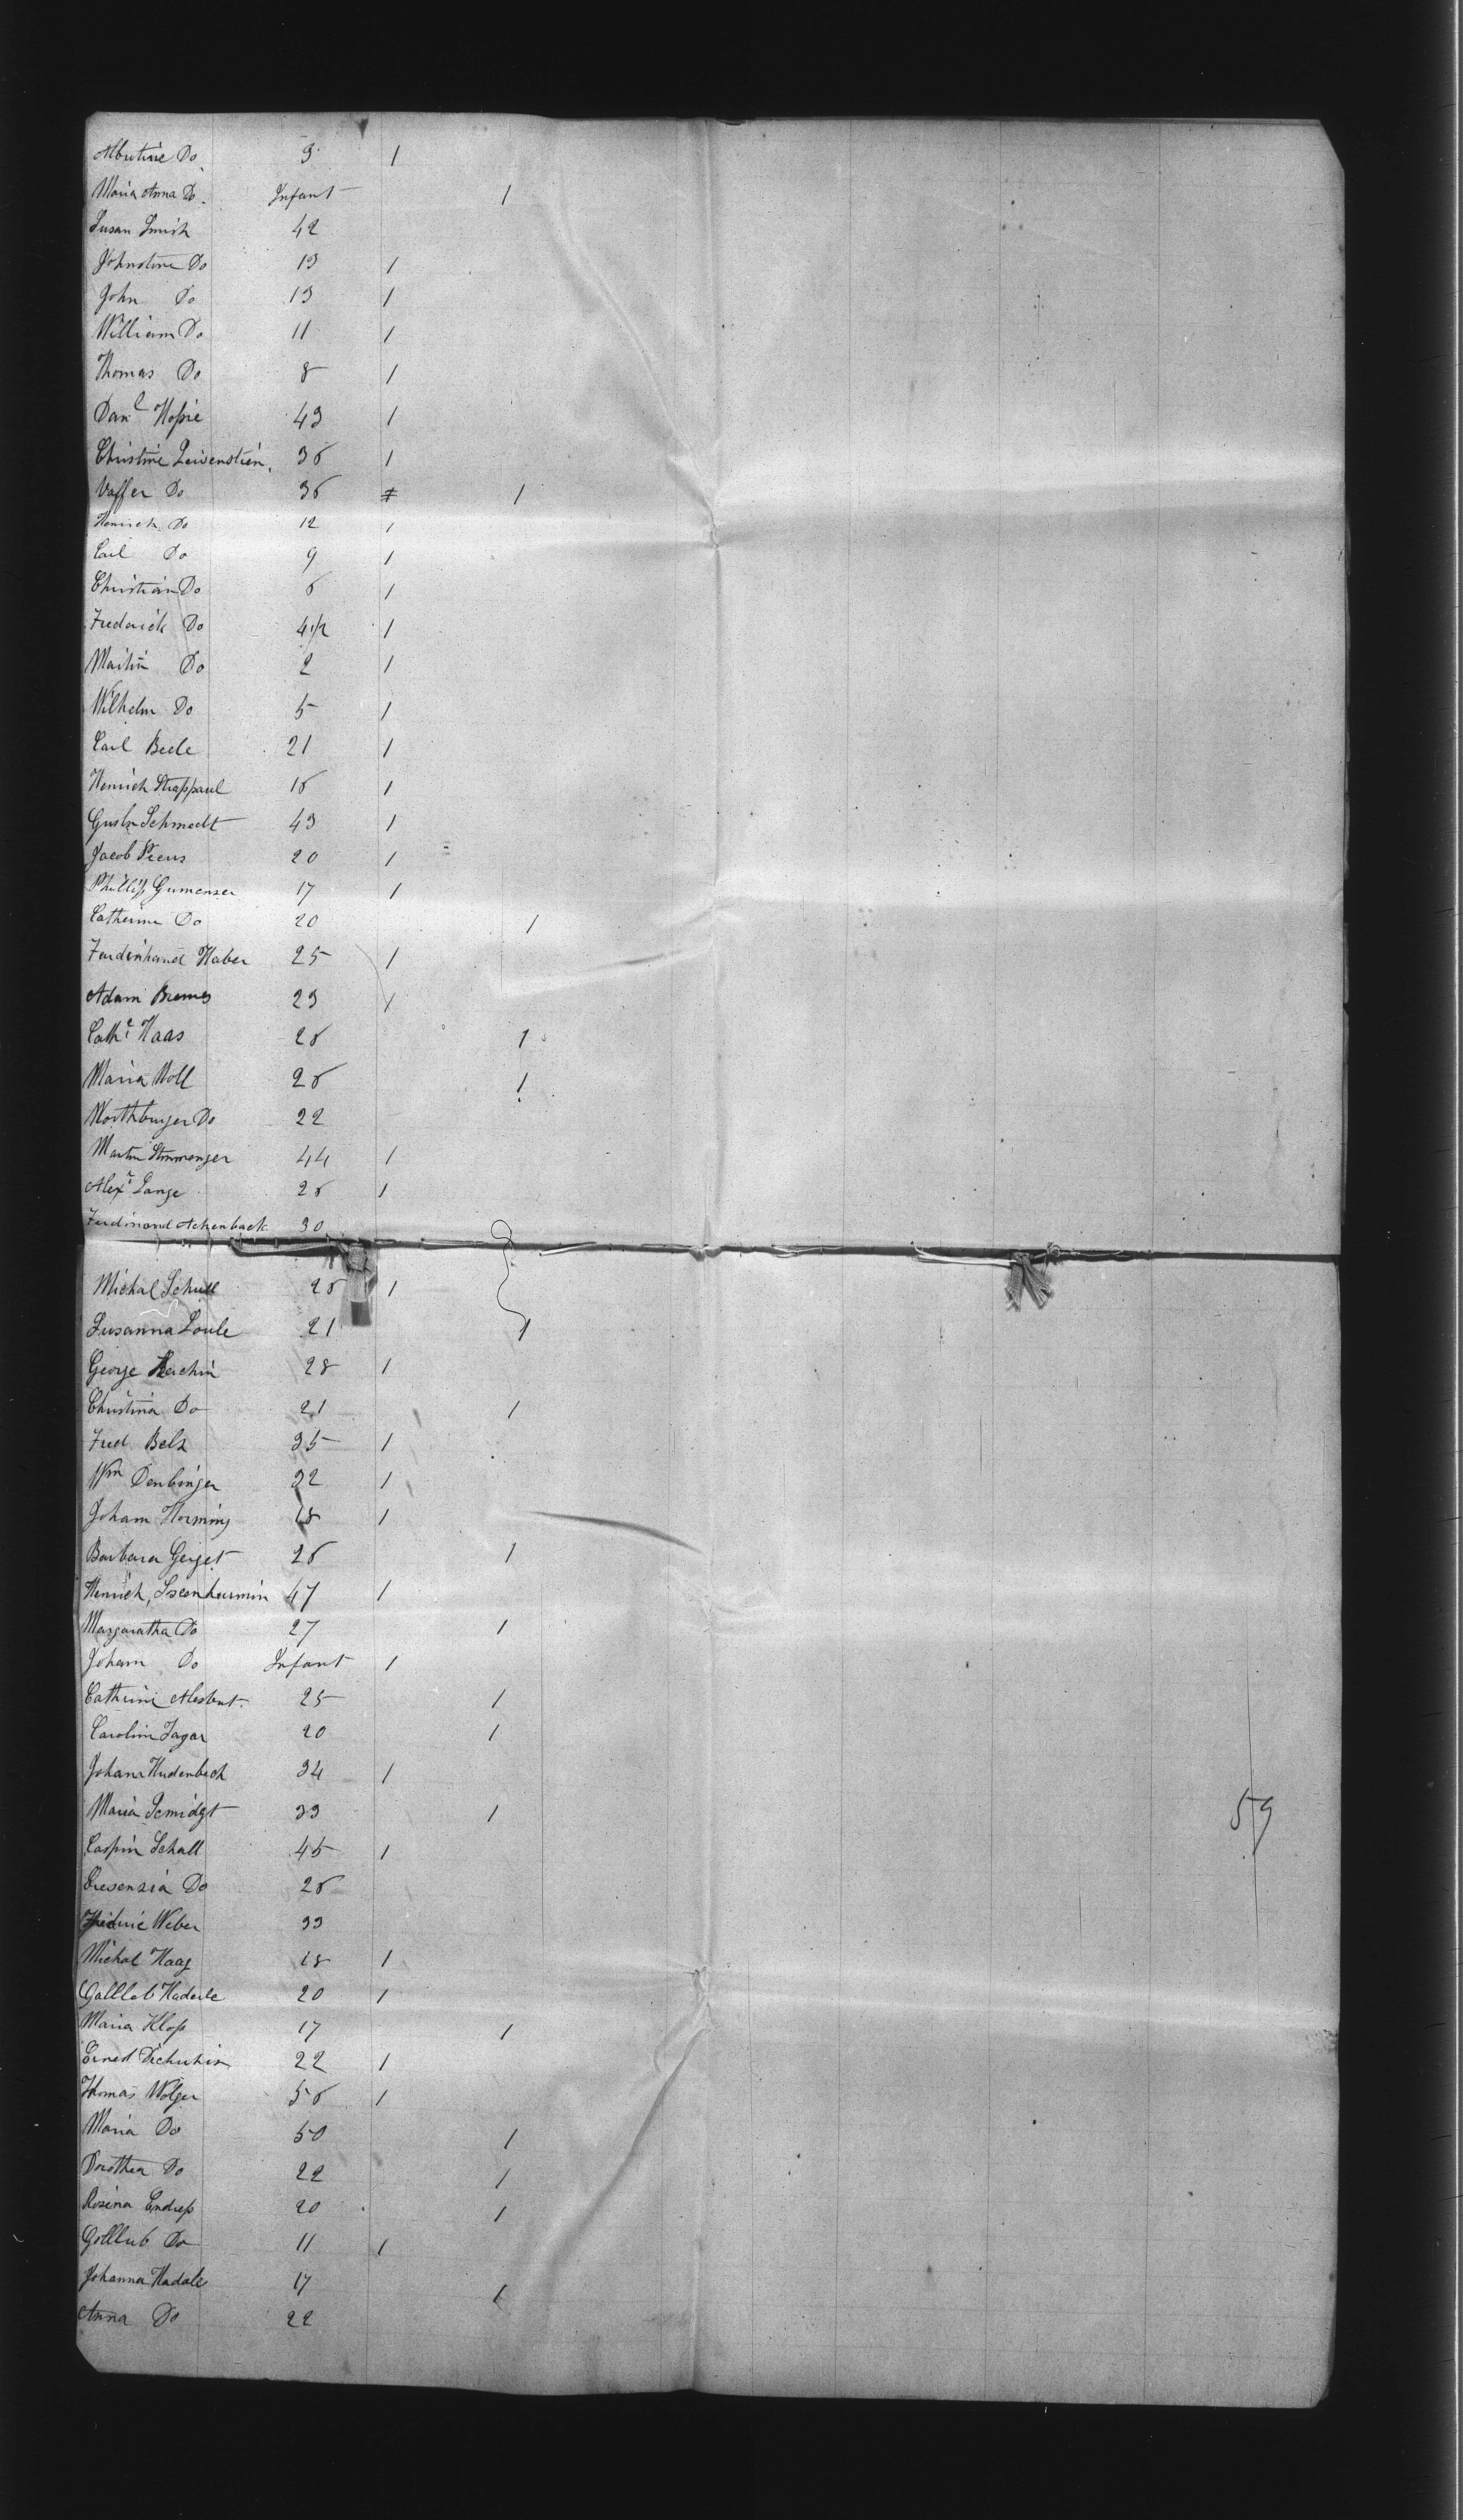 Albertine Do 3 1
Maria Anna Do. Infant 1
Susan Smith 42
Johnstine Do 13 1
John Do 13 1
William Do 11 1
Thomas Do 8 1
Danl Hossie 43 1
Christine Leivenstien. 36 1
Vaffer Do 36 1
Henrich Do 12 1
Carl Do 9 1
Christian Do 6 1
Frederick Do 4 1/2 1
Martin Do 2 1
Wilhelm Do 5 1
Carl Beele 21 1
Henrich Strappaul 16 1
Gustn Schmedt 43 1
Jacob 20 1
Phillip Gumenser 17 1
Catherine Do 20 1
Ferdinhand Haber 25 1
Adam Bremes 23 1
Cathe Haas 26 1
Maria Noll 26 1
Northburger Do 22
Martin Stimmenger 44 1
Alexr Lange 26 1
Ferdinand Achenback 30
Michal Schull 26 1
Susanna Loule 21 1
George Hachin 28 1
Christina Do 21 1
Fred Belz 35 1
Wm Denbinger 32 1
Joham Horming 18 1
Barbara Gerget 26 1
Henrich, 47 1
Margaratha Do 27 1
Joham Do Infant 1
Catherine 25 1
Carolin Jagar 20 1
Johann Hudenbach 34 1
Maria Scmidgt 33 1
Caspin Schall 45 1
Cresenzia Do 26
Weber 33
Michal Haag 18 1
Gottleb Haderle 20 1
Maria Kloss 17 1
Ernest 22 1
Thomas Wolger 56 1
Maria Do 50 1
Dorothea Do 22 1
Rosina Endress 20 1
Gottlub Do 11 1
Johanna Hadale 17 1
Anna Do 22
59